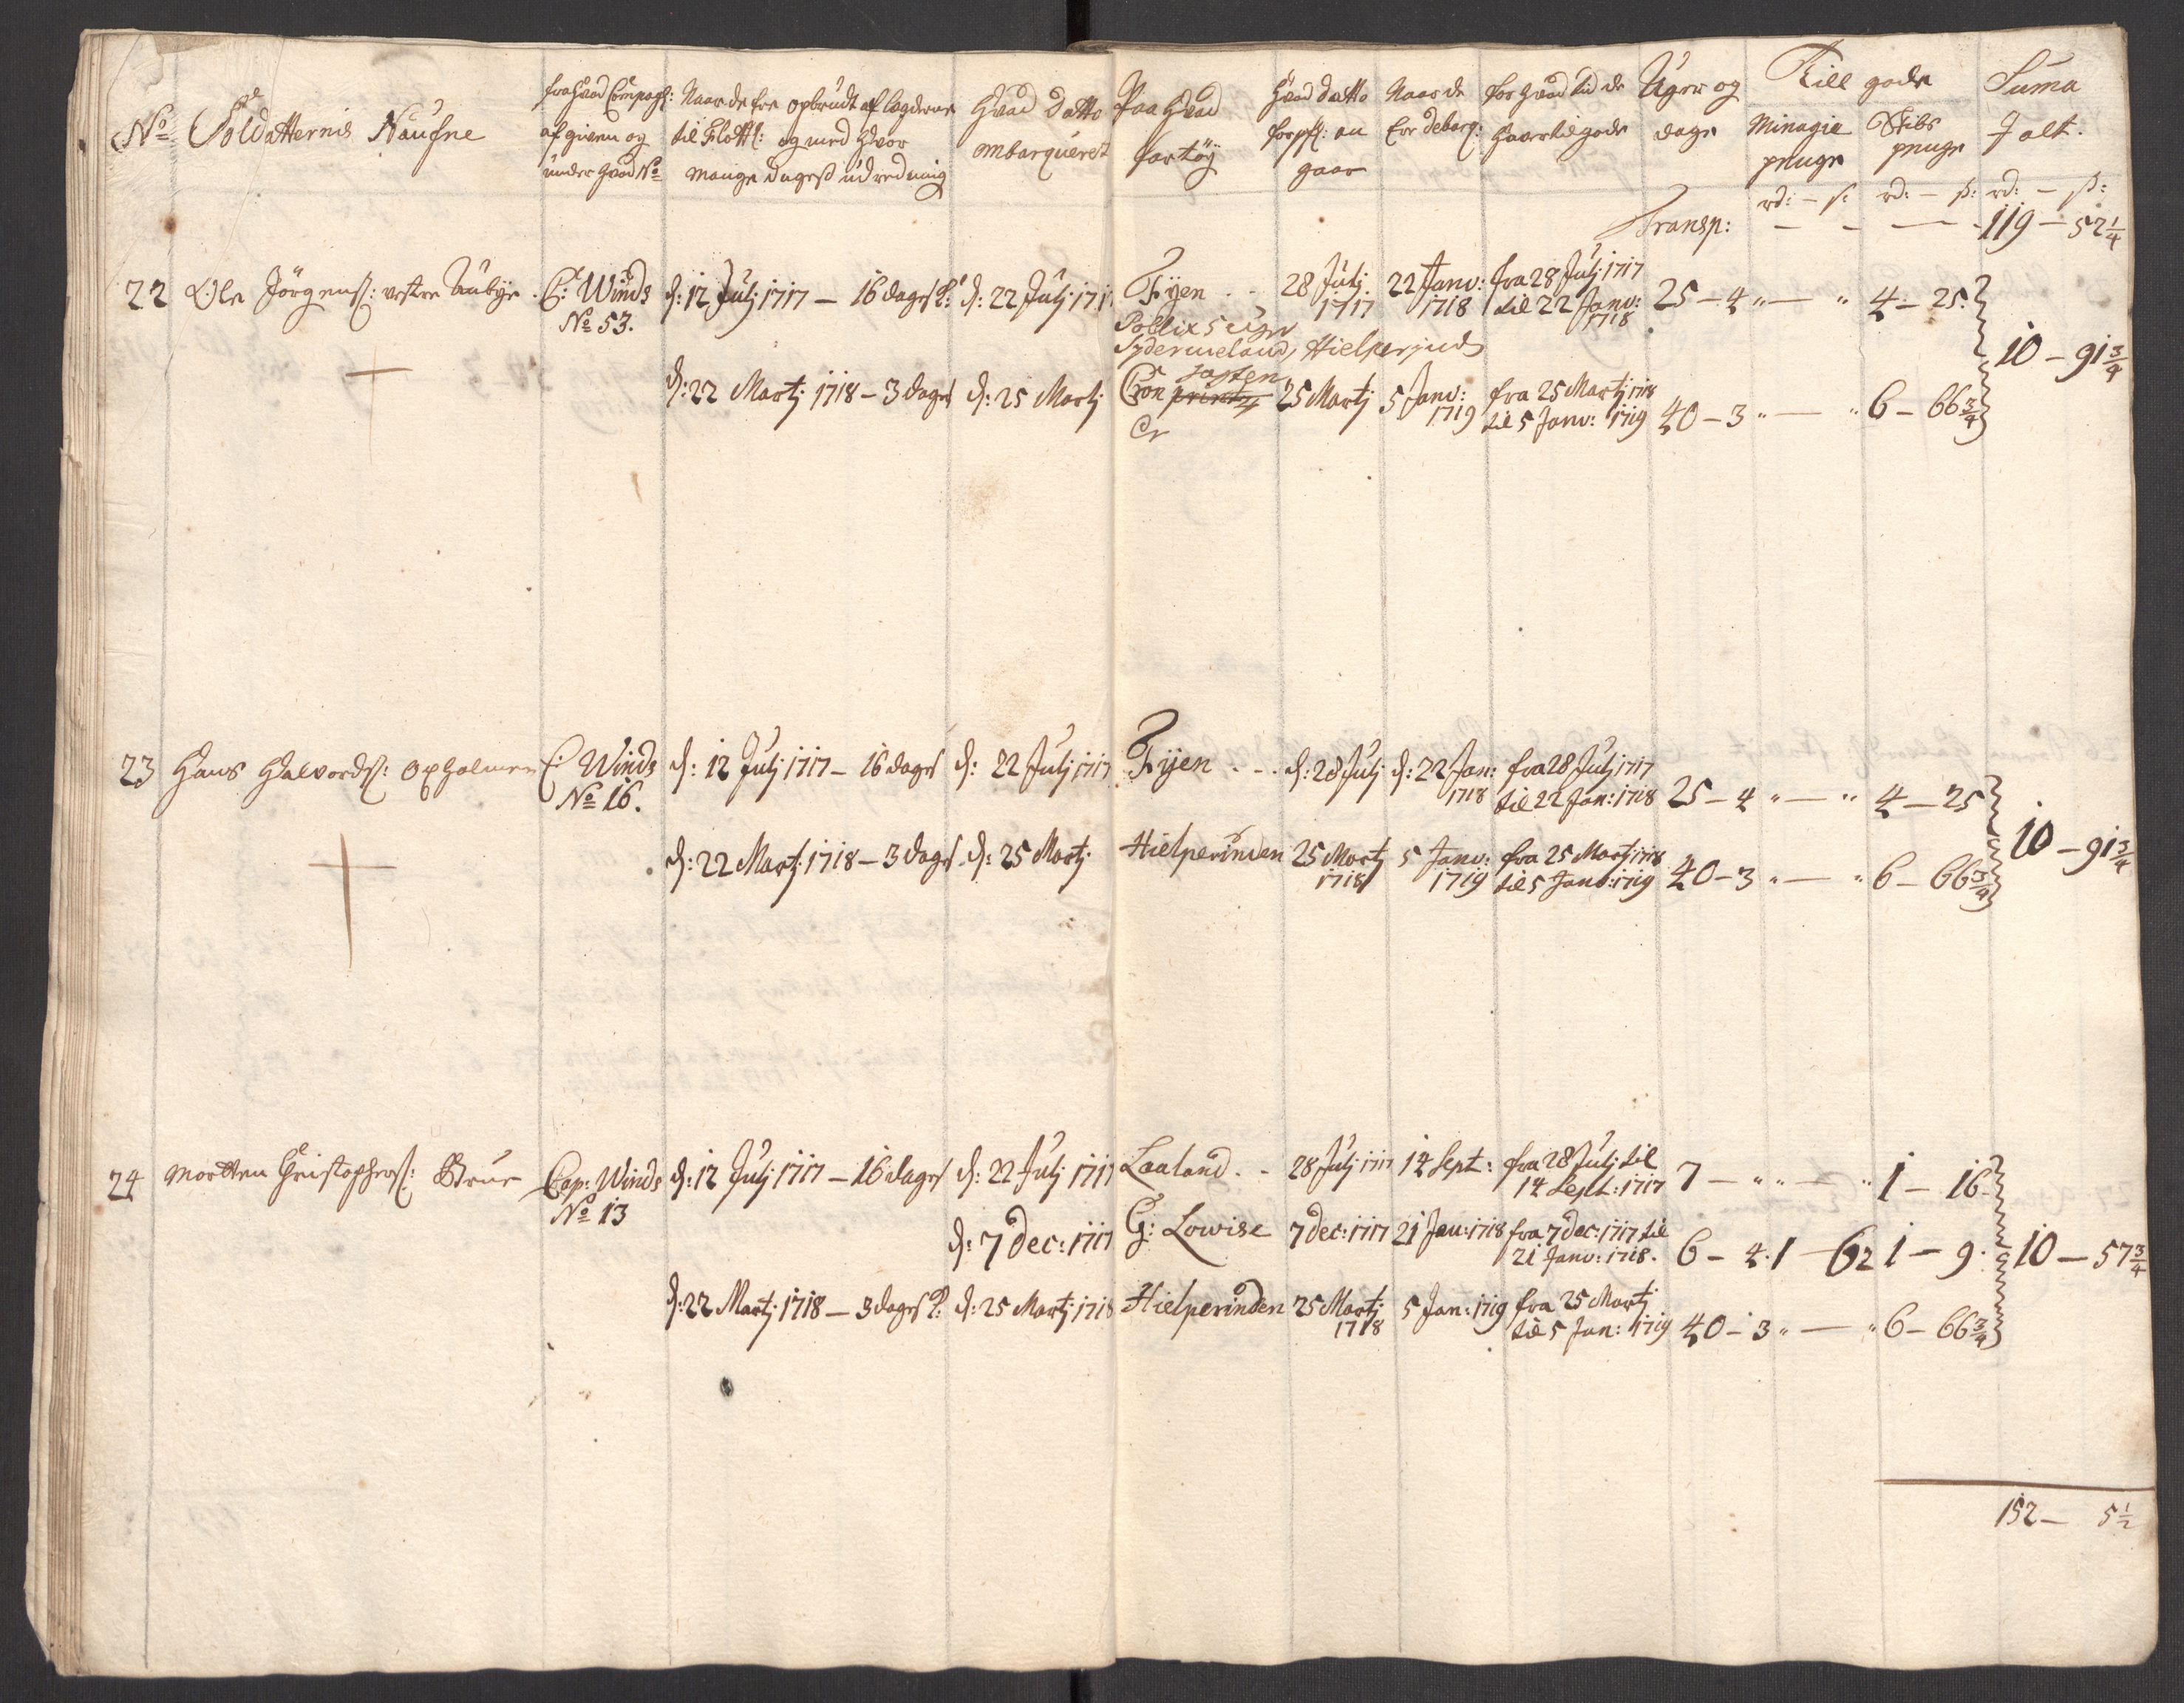 No Soldatternis Naufne
fra hvad Compagt:
afgiven og
under hvad No
Naar de ere opbrudt af lagderne
til Flott: og med hvor
mange dages udredning
Hvad Datto
embarqueret
Paa hvad
fartöy
Hvad datto
forpfl: an
gaar
Naar de
ere debarq:
for hvad tid de
haar tilgode
Uger og
dage
Till gode
Minagie
penge
Skibs
penge
Suma
J alt.
rd: – s: rd: – s: rd: – s:
Transp: – – — 119 – 52 1/4
22 Ole Jörgens: vestre
C: Winds
No 53.
d: 12 Julj 1717 – 16 dages P: d: 22 Julj 1717
Fyen . . 28 Julj 1717 22 Janv: 1718 fra 28 Julj 1717 til 22 Janv: 1718 25 – 4 " — " 4 – 25.
Sydermeland, Hielperind
d: 22 Martj 1718 – 3 dages d: 25 Martj
Cron 25 Martj 5 Janv: 1719 fra 25 Martj 1718 til 5 Janv: 1719 40 – 3 " — " 6 – 66 3/4
10 – 91 3/4
23 Hans Halvords: Opholmen
C: Winds
No 16.
d: 12 Julj 1717 – 16 dages d: 22 Julj 1717
Fyen . . . d: 28 Julj d: 22 Jan: 1718 fra 28 Julj 1717 til 22 Jan: 1718 25 – 4 " — " 4 – 25
d: 22 Martj 1718 – 3 dages d: 25 Martj
Hielperinden 25 Martj 1718 5 Janv: 1719 fra 25 Martj 1718 til 5 Janv: 1719 40 – 3 " — " 6 – 66 3/4
10 – 91 3/4
24 Morten Christophers:
Cap: Winds
No 13
d: 12 Julj 1717 – 16 dages d: 22 Julj 1717
Laaland . . 28 Julj 1717 14 Sept: fra 28 Julj til 14 Sept: 1717 7 – " " — " 1 – 16
d: 7 Dec: 1717
G: Lowise 7 Dec: 1717 21 Jan: 1718 fra 7 Dec: 1717 til 21 Janv: 1718. 6 – 4. 1 – 62 1 – 9.
d: 22 Martj 1718 – 3 dages P: d: 25 Martj 1718
Hielperinden 25 Martj 1718 5 Jan: 1719 fra 25 Martj til 5 Jan: 1719 40 – 3 " — " 6 – 66 3/4
10 – 57 3/4
152 – 5 1/2